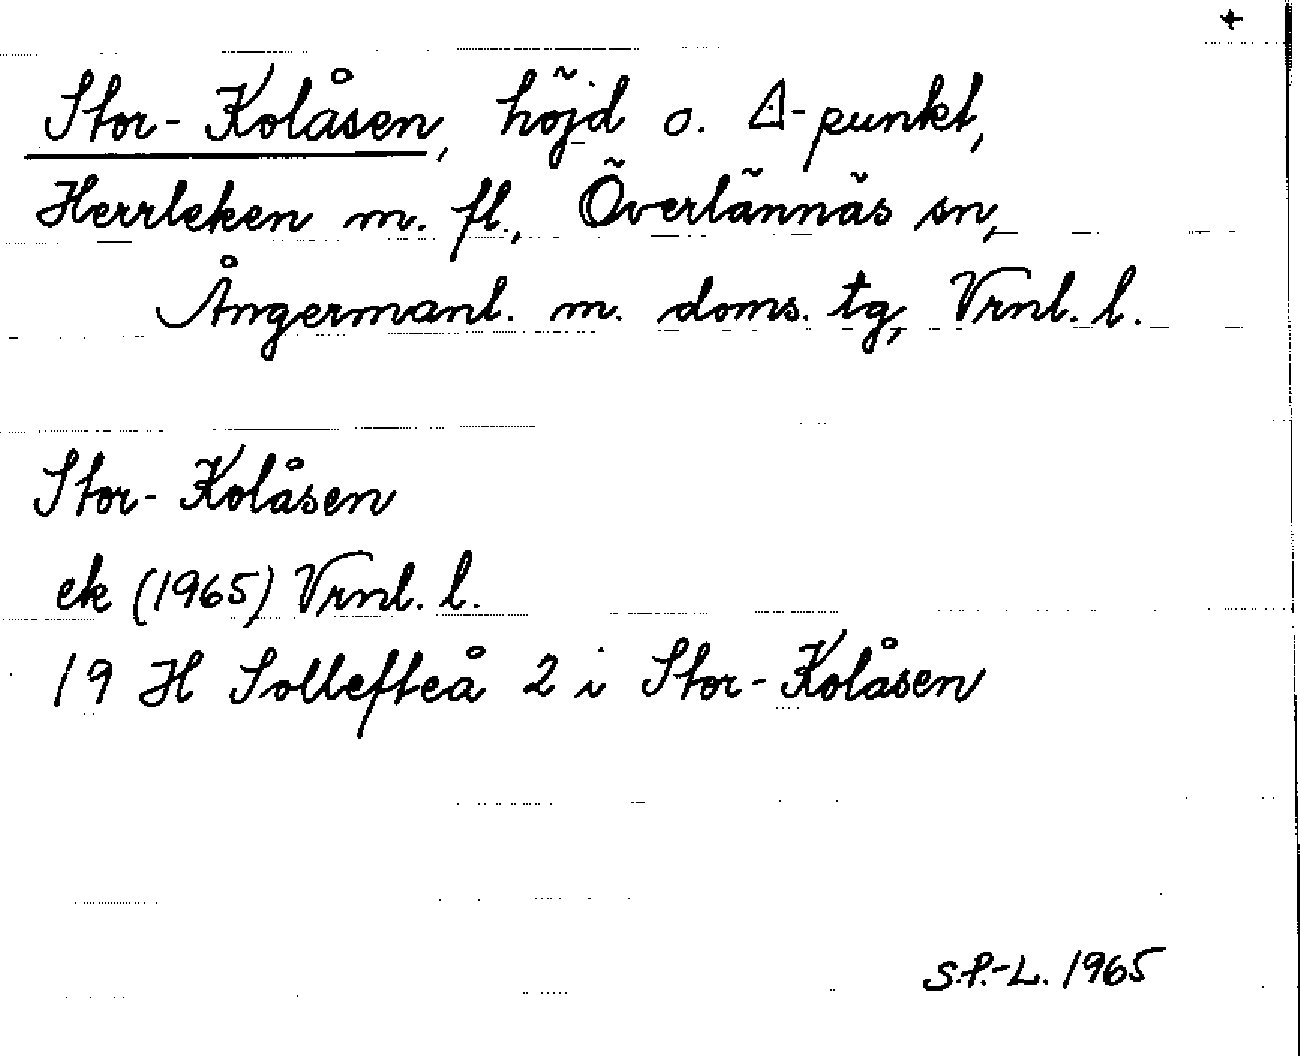 +
Stor-Kolåsen, höjd o. △-punkt,
Herrleken m. fl., Överlännäs sn,
Ångermanl. m. doms. tg, Vrnl. l.
Stor-Kolåsen
ek (1965) Vrnl. l.
19 H Sollefteå 2 i Stor-Kolåsen
S.P.-L. 1965